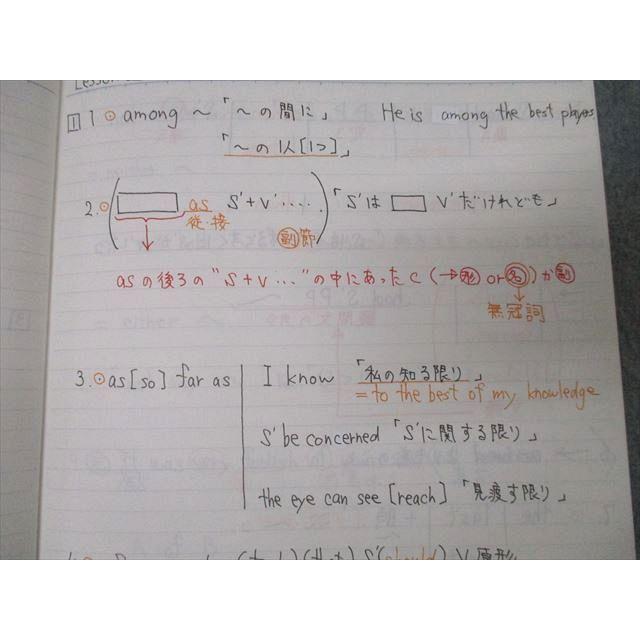 Lesson
1 1 among ~ 「~の間に」 He is among the best players
「~の1人[1つ]」
2. ( as S'+V'.... ) 「S'は V'だけれども」
従・接
副節
asの後ろの"S+V..."の中にあったC(→形 or 名)か副
無冠詞
3. as[so] far as I know 「私の知る限り」
=to the best of my knowledge
S' be concerned 「S'に関する限り」
the eye can see [reach] 「見渡す限り」
S'(should) V原形